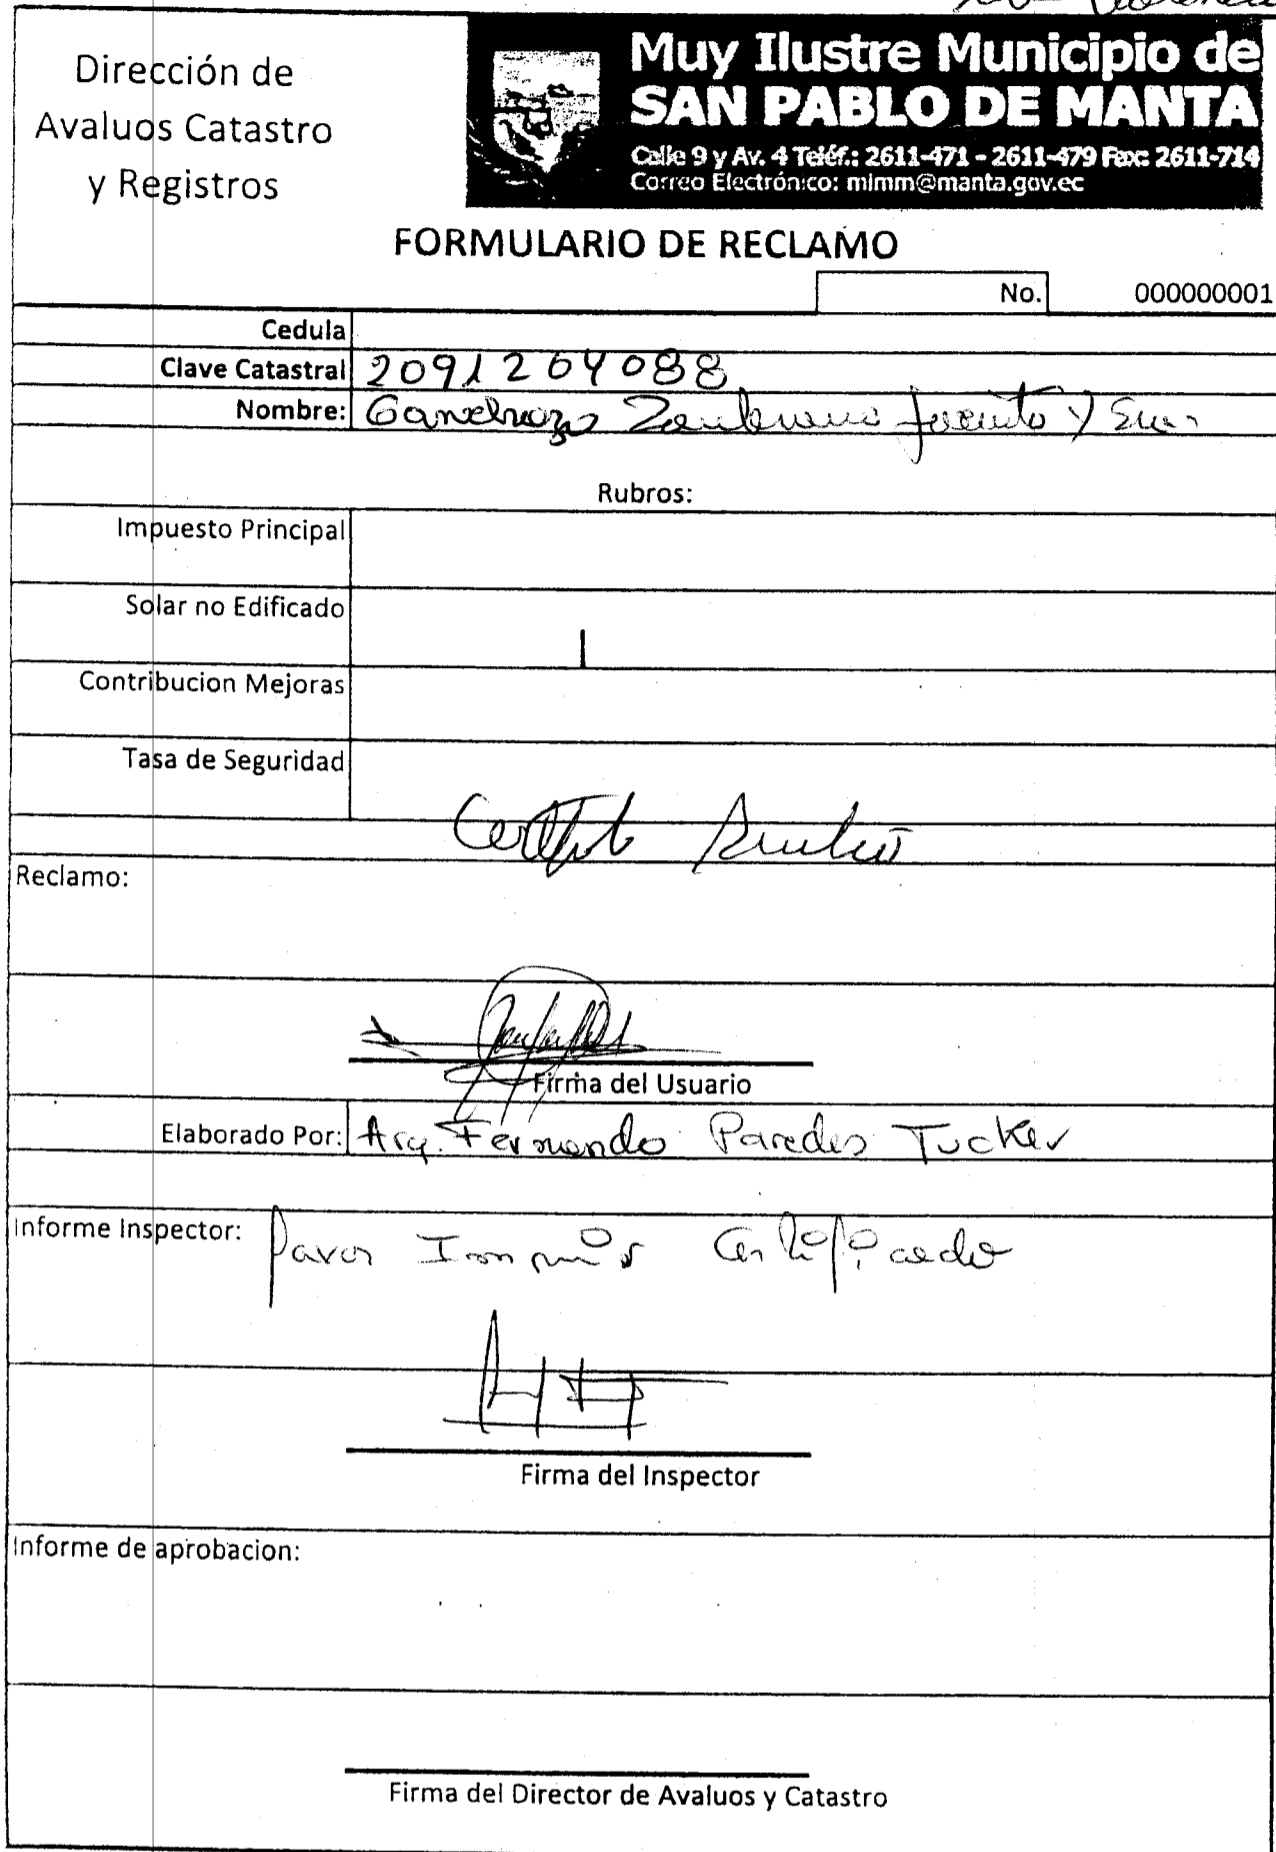 Dirección de
Avaluos Catastro
y Registros
Muy Ilustre Municipio de
SAN PABLO DE MANTA
Calle 9 y Av. 4 Teléf.: 2611-471 - 2611-479 Fax: 2611-714
Correo Electrónico: mimm@manta.gov.ec
FORMULARIO DE RECLAMO
No. 000000001
Cedula
Clave Catastral 2091264088
Nombre: Ganchozo Zambrano Jacinto y
Rubros:
Impuesto Principal
Solar no Edificado
Contribucion Mejoras
Tasa de Seguridad
Reclamo:
Firma del Usuario
Elaborado Por: Arq. Fernando Paredes Tucker
Informe Inspector: Certificado
Firma del Inspector
Informe de aprobacion:
Firma del Director de Avaluos y Catastro